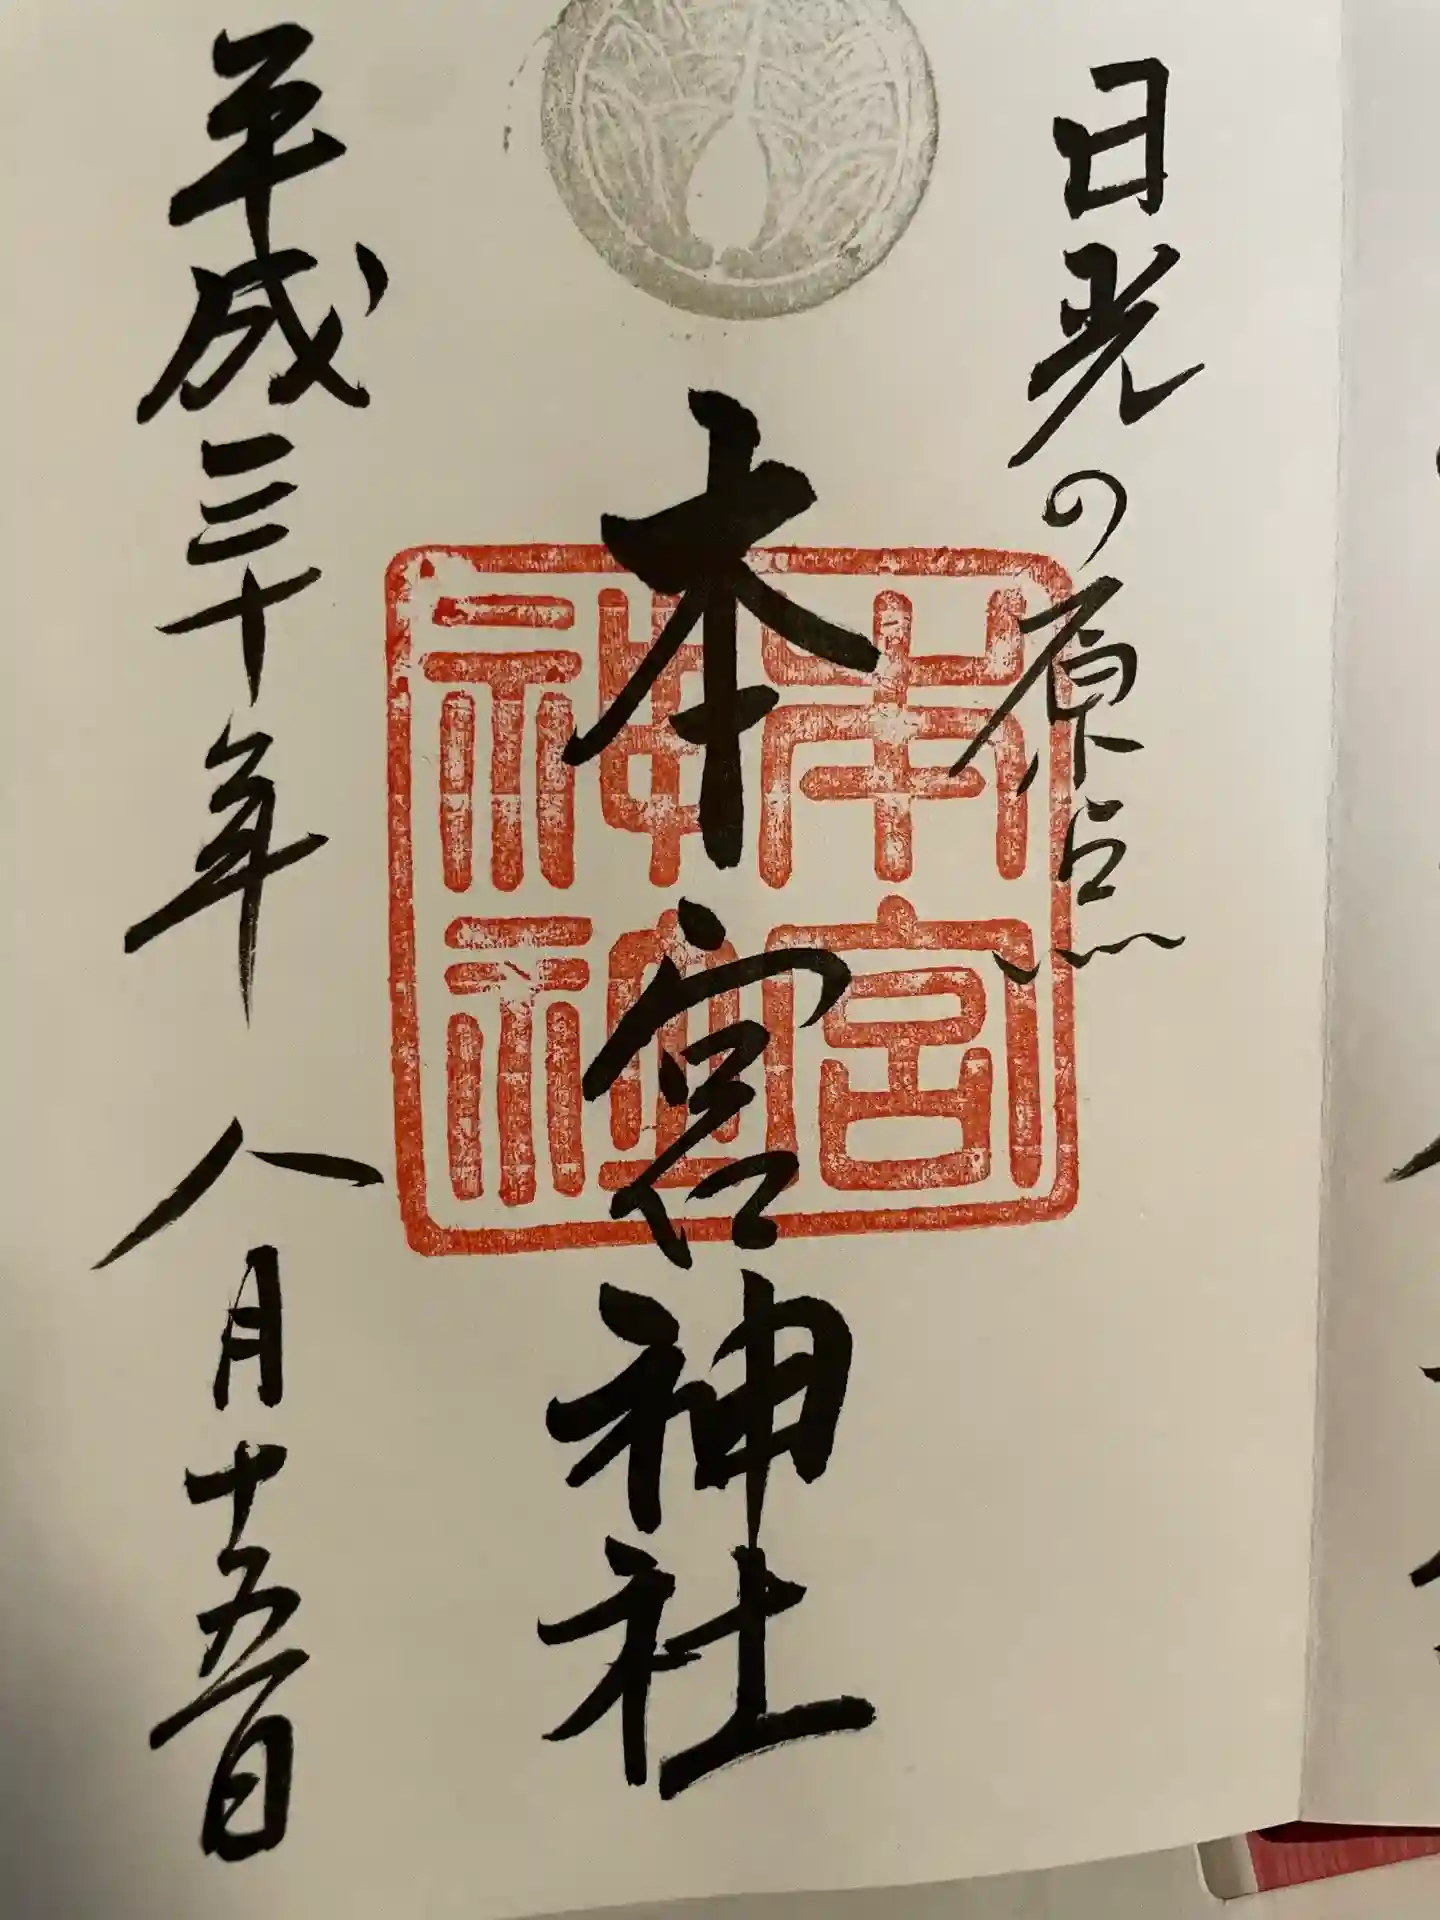 日光の原点
本宮神社
本宮神社
平成三十年 八月十五日